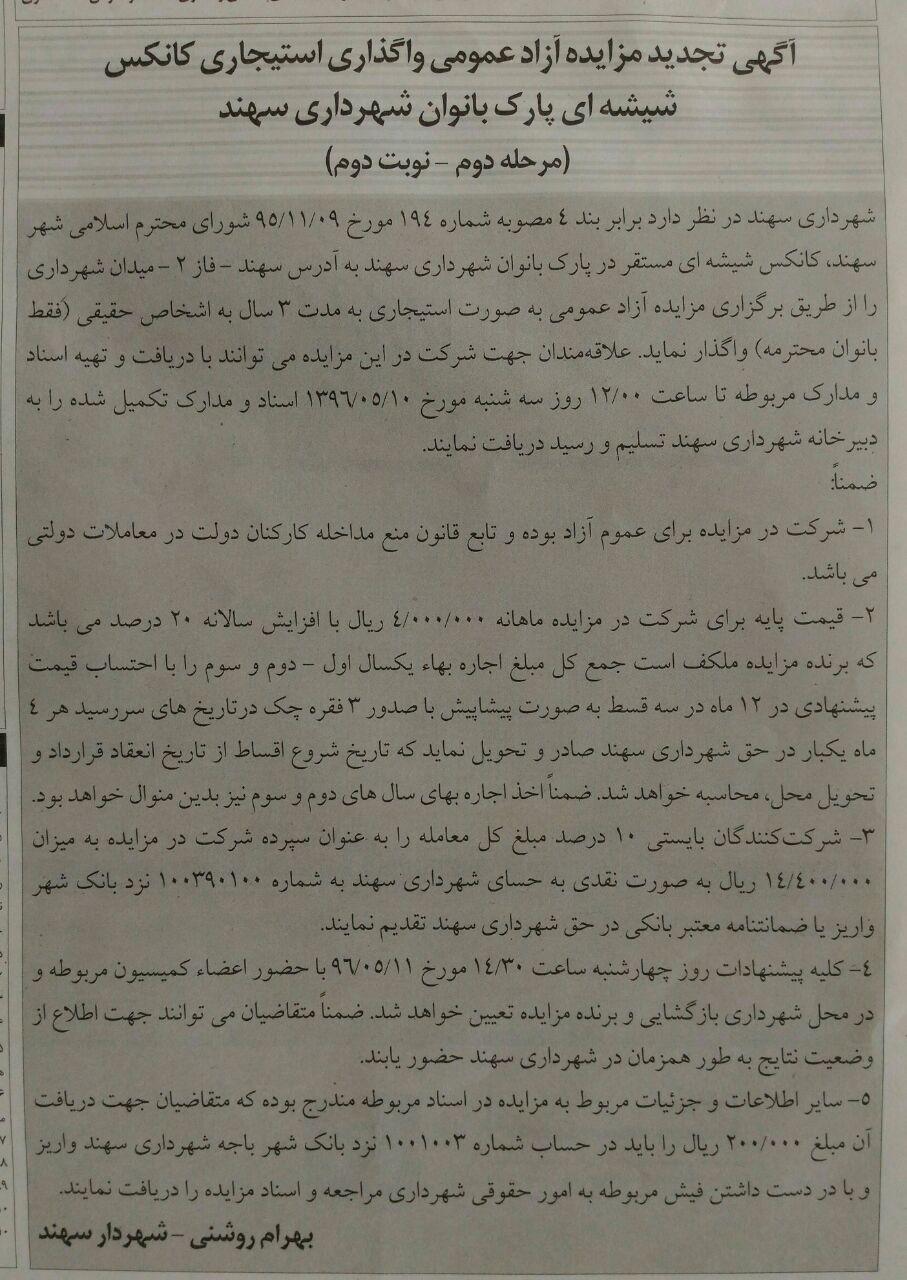 آگهی تجدید مزایده آزاد عمومی واگذاری استیجاری کانکس
شیشه ای پارک بانوان شهرداری سهند
(مرحله دوم – نوبت دوم)
شهرداری سهند در نظر دارد برابر بند ٤ مصوبه شماره ١٩٤ مورخ ٩٥/١١/٠٩ شورای محترم اسلامی شهر
سهند، کانکس شیشه ای مستقر در پارک بانوان شهرداری سهند به آدرس سهند – فاز ٢ – میدان شهرداری
را از طریق برگزاری مزایده آزاد عمومی به صورت استیجاری به مدت ٣ سال به اشخاص حقیقی (فقط
بانوان محترمه) واگذار نماید. علاقه‌مندان جهت شرکت در این مزایده می توانند با دریافت و تهیه اسناد
و مدارک مربوطه تا ساعت ١٢/٠٠ روز سه شنبه مورخ ١٣٩٦/٠٥/١٠ اسناد و مدارک تکمیل شده را به
دبیرخانه شهرداری سهند تسلیم و رسید دریافت نمایند.
ضمناً:
١– شرکت در مزایده برای عموم آزاد بوده و تابع قانون منع مداخله کارکنان دولت در معاملات دولتی
می باشد.
٢– قیمت پایه برای شرکت در مزایده ماهانه ٤/٠٠٠/٠٠٠ ریال با افزایش سالانه ٢٠ درصد می باشد
که برنده مزایده ملکف است جمع کل مبلغ اجاره بهاء یکسال اول – دوم و سوم را با احتساب قیمت
پیشنهادی در ١٢ ماه در سه قسط به صورت پیشاپیش با صدور ٣ فقره چک درتاریخ های سررسید هر ٤
ماه یکبار در حق شهرداری سهند صادر و تحویل نماید که تاریخ شروع اقساط از تاریخ انعقاد قرارداد و
تحویل محل، محاسبه خواهد شد. ضمناً اخذ اجاره بهای سال های دوم و سوم نیز بدین منوال خواهد بود.
٣– شرکت‌کنندگان بایستی ١٠ درصد مبلغ کل معامله را به عنوان سپرده شرکت در مزایده به میزان
١٤/٤٠٠/٠٠٠ ریال به صورت نقدی به حسای شهرداری سهند به شماره ١٠٠٣٩٠١٠٠ نزد بانک شهر
واریز یا ضمانتنامه معتبر بانکی در حق شهرداری سهند تقدیم نمایند.
٤– کلیه پیشنهادات روز چهارشنبه ساعت ١٤/٣٠ مورخ ٩٦/٠٥/١١ با حضور اعضاء کمیسیون مربوطه و
در محل شهرداری بازگشایی و برنده مزایده تعیین خواهد شد. ضمناً متقاضیان می توانند جهت اطلاع از
وضعیت نتایج به طور همزمان در شهرداری سهند حضور یابند.
٥– سایر اطلاعات و جزئیات مربوط به مزایده در اسناد مربوطه مندرج بوده که متقاضیان جهت دریافت
آن مبلغ ٢٠٠/٠٠٠ ریال را باید در حساب شماره ١٠٠١٠٠٣ نزد بانک شهر باجه شهرداری سهند واریز
و با در دست داشتن فیش مربوطه به امور حقوقی شهرداری مراجعه و اسناد مزایده را دریافت نمایند.
بهرام روشنی – شهردار سهند